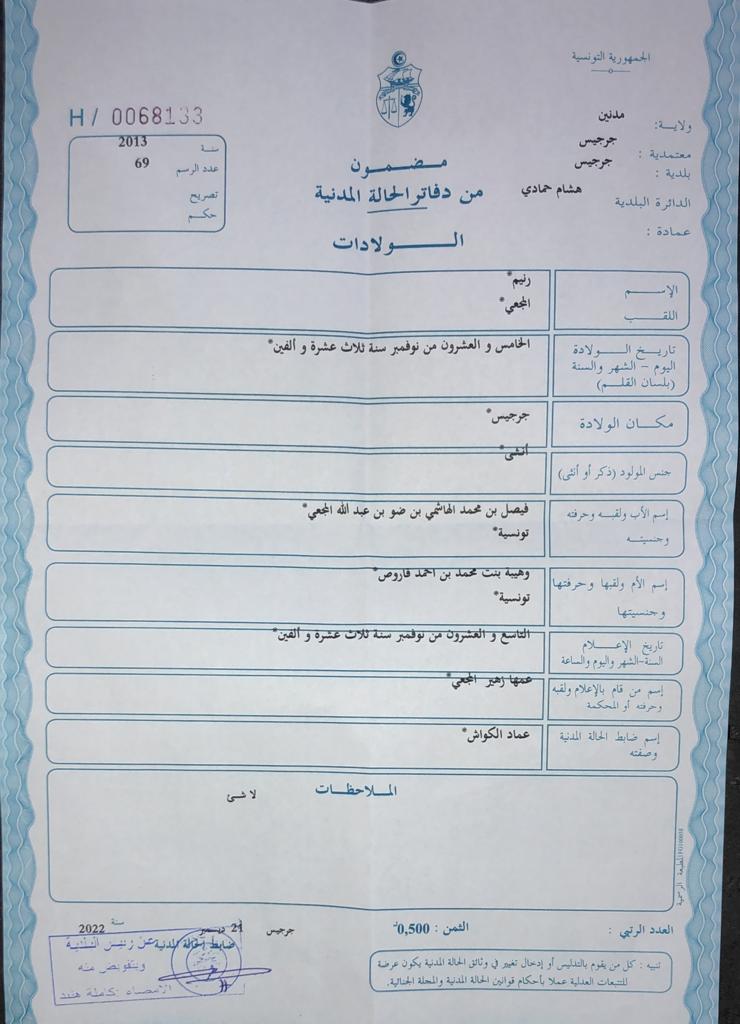 الجمهورية التونسية
H / 0068133
ولاية: مدنين
معتمدية : جرجيس
بلدية : جرجيس
الدائرة البلدية هشام حمادي
عمادة :
سنة 2013
عدد الرسم 69
تصريح
حكم
مضمون
من دفاتر الحالة المدنية
الولادات
الإسم رنيم*
اللقب المجعي*
تاريخ الولادة
اليوم – الشهر والسنة
(بلسان القلم)
الخامس و العشرون من نوفمبر سنة ثلاث عشرة و ألفين*
مكان الولادة جرجيس*
جنس المولود (ذكر أو أنثى) أنثى*
إسم الأب ولقبه وحرفته
وجنسيته
فيصل بن محمد الهاشمي بن ضو بن عبد الله المجعي*
تونسية*
إسم الأم ولقبها وحرفتها
وجنسيتها
وهيبة بنت محمد بن احمد قاروص*
تونسية*
تاريخ الإعلام
السنة-الشهر واليوم والساعة
التاسع و العشرون من نوفمبر سنة ثلاث عشرة و ألفين*
إسم من قام بالإعلام ولقبه
وحرفته أو المحكمة
عمها زهير المجعي*
إسم ضابط الحالة المدنية
وصفته
عماد الكواش*
الملاحظات
لا شئ
المطبعة الرسمية
العدد الرتبي :
الثمن : 0,500د
جرجيس 21 ديسمبر سنة 2022
ضابط الحالة المدنية
عن رئيس البلدية
وبتفويض منه
الامضاء : كاملة هنيد
تنبيه : كل من يقوم بالتدليس أو إدخال تغيير في وثائق الحالة المدنية يكون عرضة
للتتبعات العدلية عملا بأحكام قوانين الحالة المدنية والمجلة الجنائية.